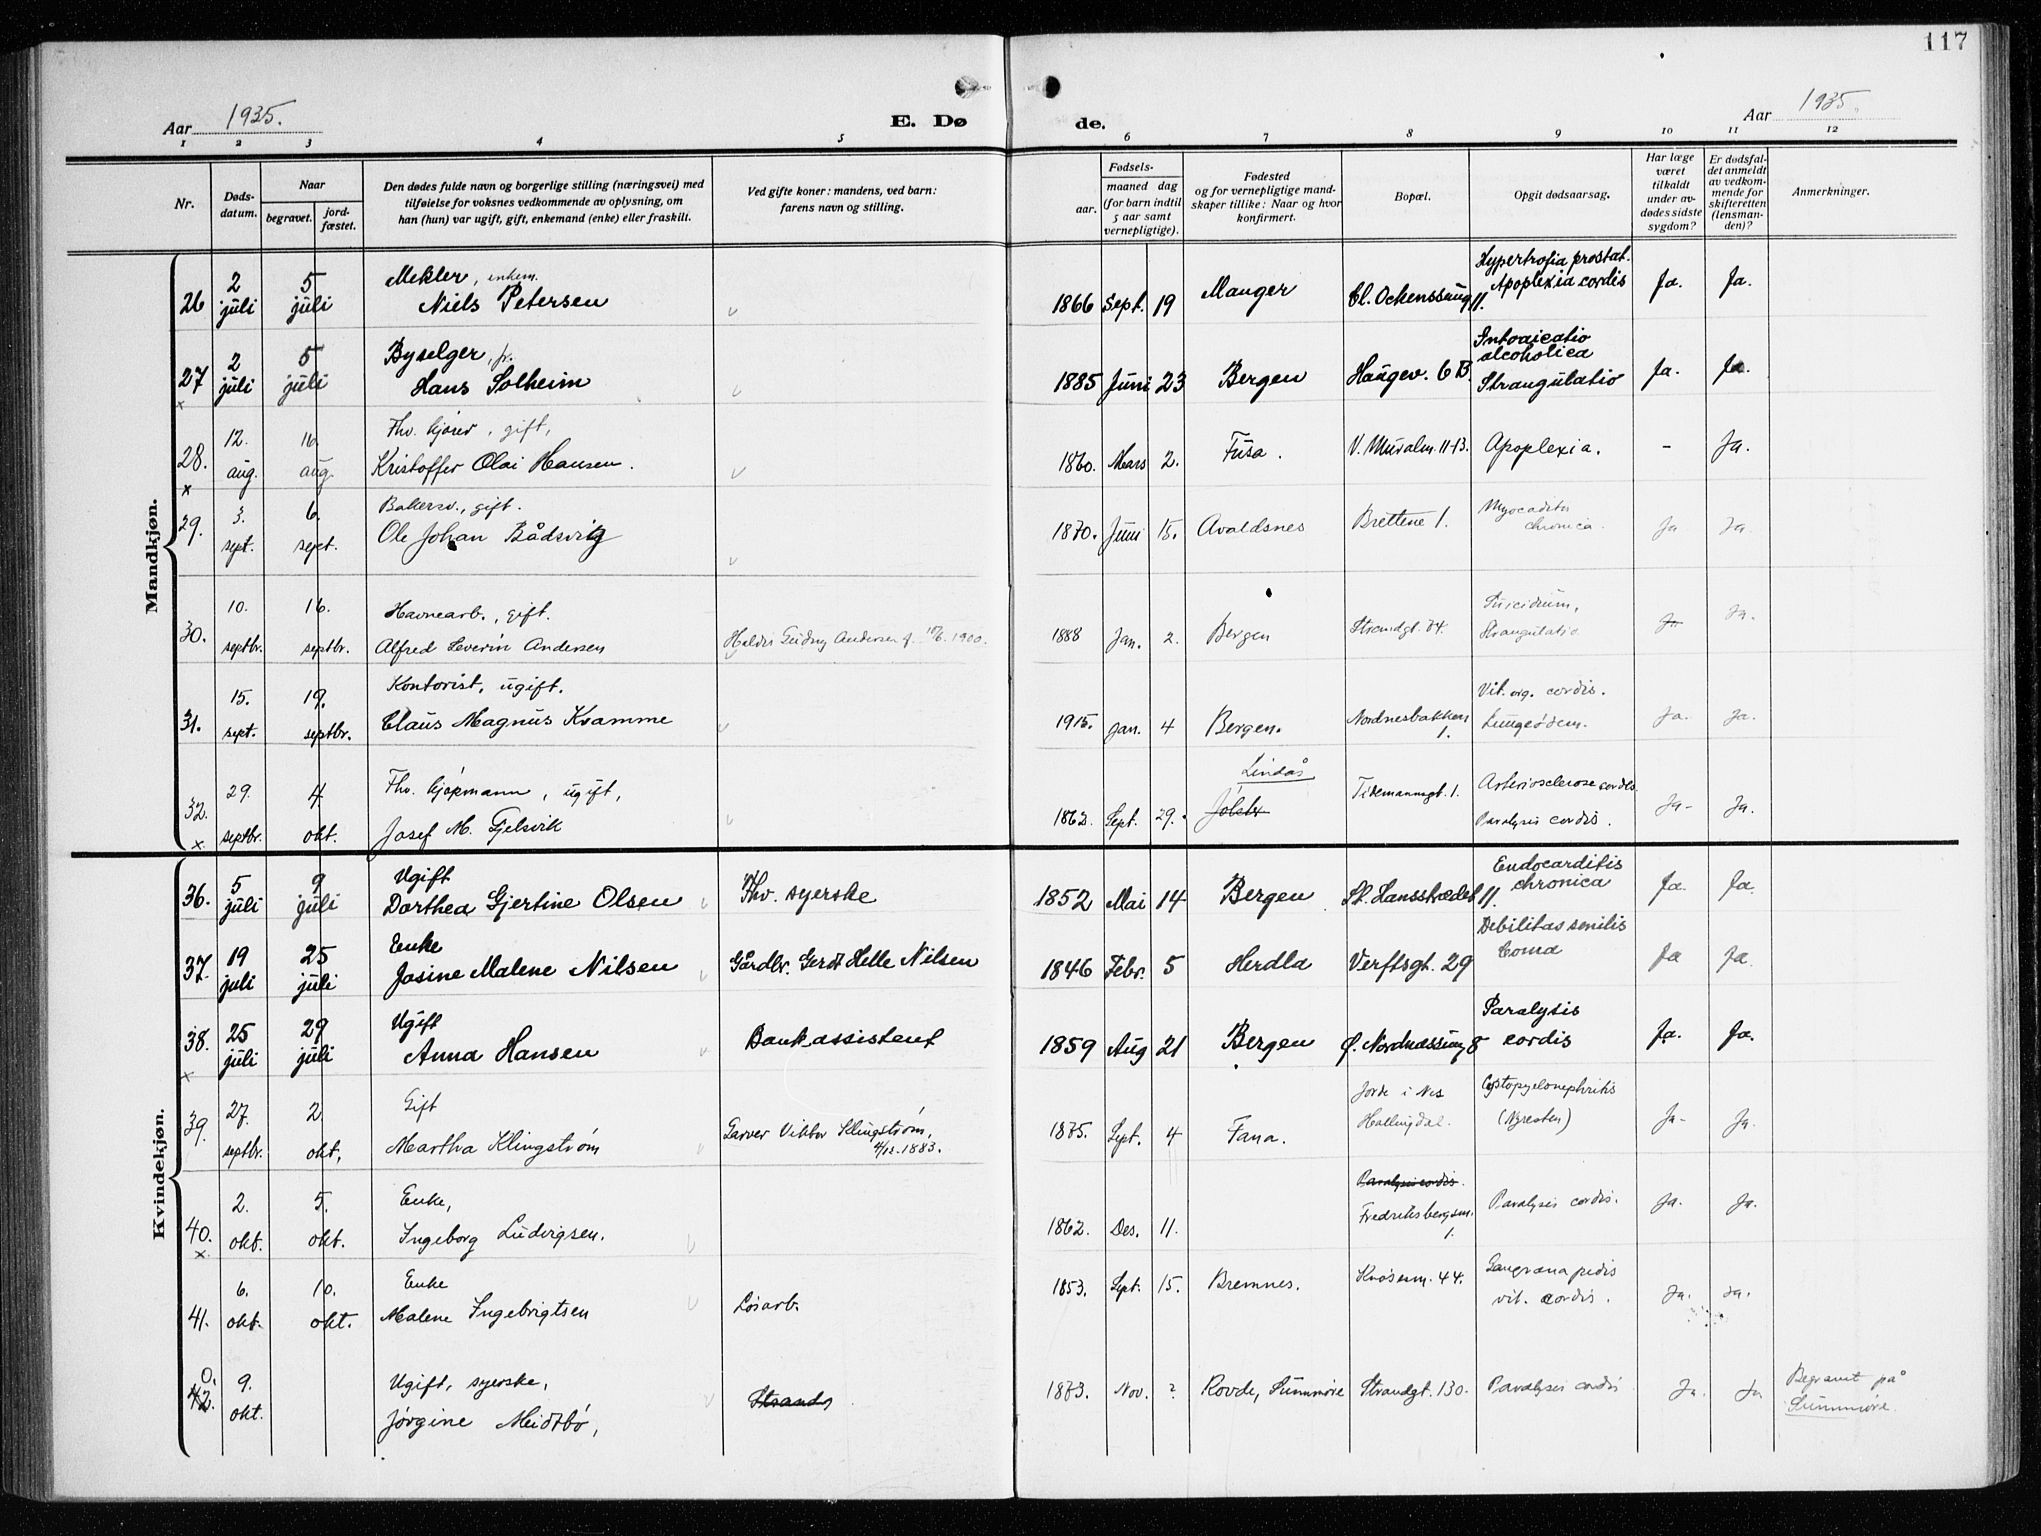 117
Aar 1935.
E. Dø
de.
Aar 1935.
1 2 3 4 5 6 7 8 9 10 11 12
Nr.
Døds-
datum.
Naar
begravet.
jord-
fæstet.
Den dødes fulde navn og borgerlige stilling (næringsvei) med
tilføielse for voksnes vedkommende av oplysning, om
han (hun) var ugift, gift, enkemand (enke) eller fraskilt.
Ved gifte koner: mandens, ved barn:
farens navn og stilling.
Fødsels-
aar.
maaned dag
(for barn indtil
5 aar samt
vernepligtige).
Fødested
og for vernepligtige mand-
skaper tillike: Naar og hvor
konfirmert.
Bopæl.
Opgit dødsaarsag.
Har læge
været
tilkaldt
under av-
dødes sidste
sygdom?
Er dødsfal-
det anmeldt
av vedkom-
mende for
skifteretten
(lensman-
den)?
Anmerkninger.
Mandkjøn.
26 2 juli 5 juli Mekler, enkem.
Niels Petersen
1866 Sept. 19 Manger Cl. Ockenssmug 11. Hypertrofia prostat.
Apoplexia cordis Ja. Ja.
27 2 juli 5 juli Byselger, fr.
Hans Solheim
1885 Juni 23 Bergen Haugev. 6 B. Intoxicatio
alcoholica
Strangulatio Ja. Ja.
28. 12. aug. 16. aug. Fhv. kjører, gift,
Kristoffer Olai Hansen.
1860. Mars 2. Fusa. V. Muralm. 11-13. Apoplexia. - Ja.
29. 3. sept. 6. sept. Bakersv., gift.
Ole Johan Bådsvig
1870. Juni 15. Avaldsnes Brettene 1. Myocadita
chronica. Ja Ja.
30. 10. septbr. 16. septbr. Havnearb., gift.
Alfred Severin Andersen
Haldis Gudny Andersen f. 1900.
1888 Jan. 2. Bergen Strandgt. 74. Suicidium,
Strangulatio Ja Ja.
31. 15. sept. 19. septbr. Kontorist, ugift.
Claus Magnus Kvamme
1915. Jan. 4 Bergen. Nordnesbakken
1. Vit. org. cordis.
Lungeødem. Ja. Ja.
32. 29. septbr. 4. okt. Fhv. kjøpmann, ugift,
Josef M. Gjelsvik
1862. Sept. 29. Lindås
Jølster Tidemannsgt. 1. Arteriosclerose cordis.
Paralysis cordis. Ja- Ja.
Kvindekjøn.
36. 5 juli 9 juli Ugift
Dorthea Gjertine Olsen
Fhv. syerske
1852 Mai 14 Bergen St. Hansstrædet 11. Endocarditis
chronica Ja. Ja.
37. 19 juli 25 juli Enke
Josine Malene Nilsen
Gårdbr. Gerdt Helle Nilsen
1846 Febr. 5 Herdla Verftsgt. 29 Debilitas senilis
Coma Ja Ja.
38. 25 juli 29 juli Ugift
Anna Hansen
Bankassistent
1859 Aug 21 Bergen Ø. Nordnessmug 8 Paralysis
cordis Ja. Ja.
39. 27. septbr. 2 okt. Gift
Martha Klingstrøm
Garver Viktor Klingstrøm,
4/12. 1883.
1875. Sept. 4 Fana. Jorde i Nes
Hallingdal. Cystopyelonephritis
(Nyresten) Ja- Ja.
40. 2. okt. 5. okt. Enke,
Ingeborg Ludvigsen.
1862. Des. 11. Paralysis cordis.
Fredriksbergsm.
1. Paralysis cordis. Ja. Ja.
41. 6. okt. 10. okt. Enke
Malene Ingebrigtsen
Løsarb.
1853. Sept. 15. Bremnes. Knøsesm. 44. Gangræna pedis
vit. cordis. Ja. Ja.
0.
42. 9. okt. Ugift, syerske,
Jørgine Meidtbø,
Strands
1873. Nov. ? Rovde, Sunnmøre Strandgt. 130. Paralysis cordis Ja. Ja Begravet på
Sunnmøre.